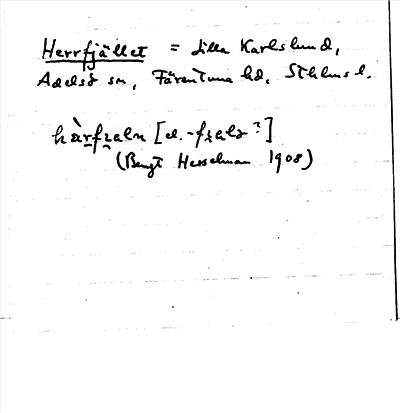 Herrfjället = Lilla Karlslund,
Adelsö sn, Färentuna hd, Sthlms l.
hàrfzaln [el. -fzalz?]
(Bengt Hesselman 1908)